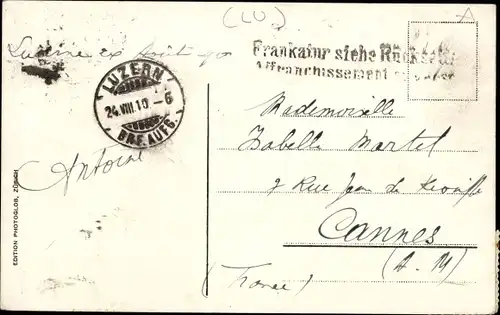 (LU)
A
Frankatur siehe Rückseite
Affranchissement
LUZERN
24.VIII.10 - 6
BRF.AUFG.
Antoine
Mademoiselle
Isabelle Martel
9 Rue Jean de
Cannes
(A. M)
(France)
EDITION PHOTOGLOB, ZÜRICH